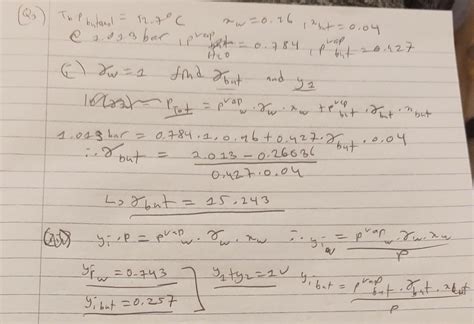 Q3) butanol = 12.7°C x_w = 0.96, x_but = 0.04
@ 1.013 bar, P^vap_H2O = 0.784, P^vap_but = 0.427
γ_w = 1 find γ_but and y_1
P_tot = P^vap_w · γ_w · x_w + P^vap_but · γ_but · x_but
1.013 bar = 0.784 · 1 · 0.96 + 0.427 · γ_but · 0.04
∴ γ_but = 1.013 - 0.26036 / 0.427 · 0.04
↳ γ_but = 15.243
y_i · P = P^vap_w · γ_w · x_w ∴ y_i_w = P^vap_w · γ_w · x_w / P
y_i_w = 0.743
y_1 + y_2 = 1 ✓
y_i_but = 0.257
y_i_but = P^vap_but · γ_but · x_but / P